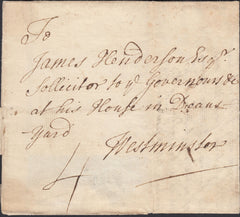 To
James Henderson Esqr.
Sollicitor to ye Governours &c
at his House in Deans
Yard
Westminster
4